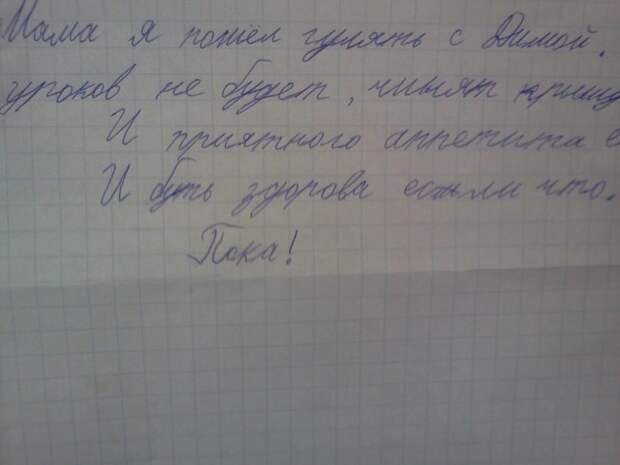 Мама я пошел гулять с Димой.
уроков не будет, чинят крышу
И приятного аппетита е
И буть здорова если что.
Пока!